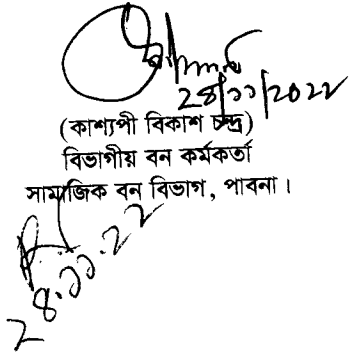 ২৪/১১/২০২২
(কাশ্যপী বিকাশ চন্দ্র)
বিভাগীয় বন কর্মকর্তা
সামাজিক বন বিভাগ, পাবনা।
২৪.১১.২২